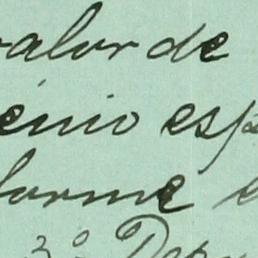 valor de
énio esp
forme e
3º Dep